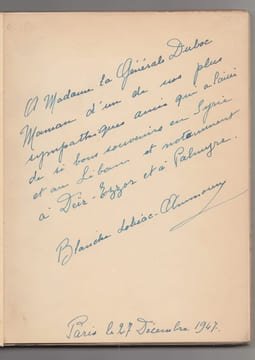 A Madame la Générale Duboc
Maman d'un de nos plus
sympathiques amis qui a laissé
de si bons souvenirs en Syrie
et au Liban et notamment
à Deir-Ezzor et à Palmyre.
Blanche
Paris le 27 Décembre 1947.